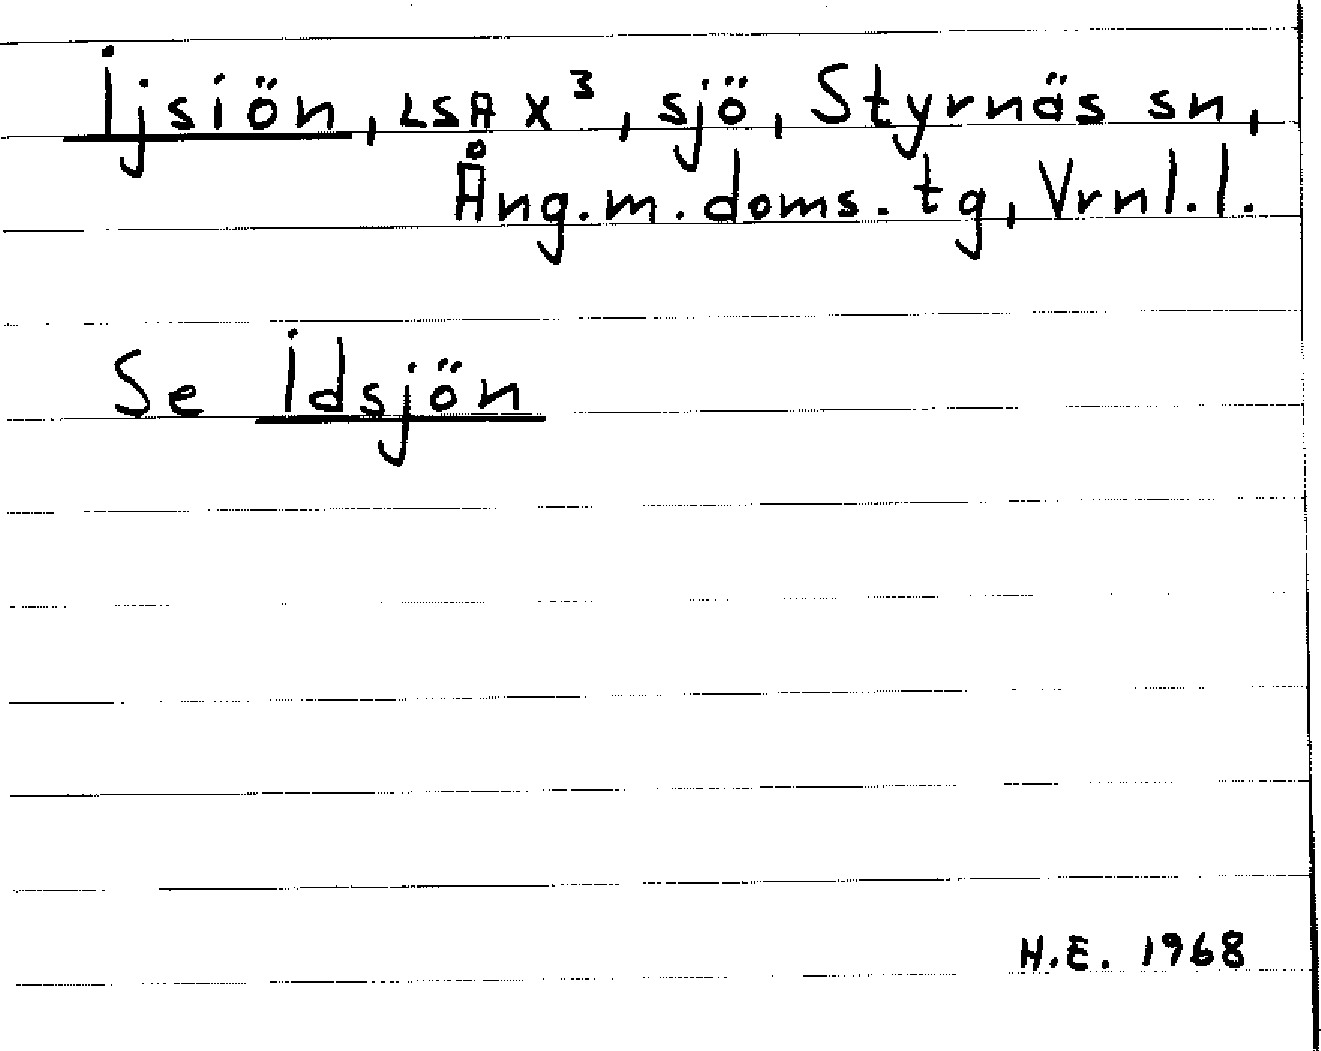 Ijsiön, LSA X³, sjö, Styrnäs sn,
Ång.m.doms.tg, Vrnl.l.
Se Idsjön
H.E. 1968